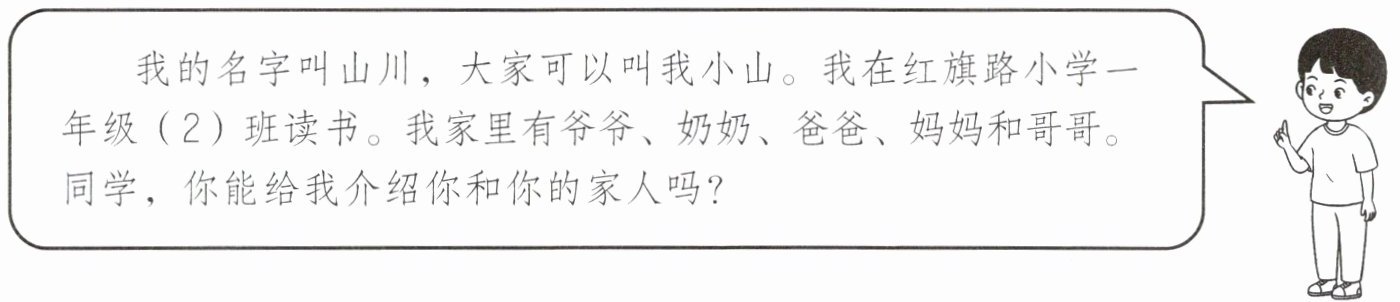 我的名字叫山川，大家可以叫我小山。我在红旗路小学一
年级（2）班读书。我家里有爷爷、奶奶、爸爸、妈妈和哥哥。
同学，你能给我介绍你和你的家人吗？